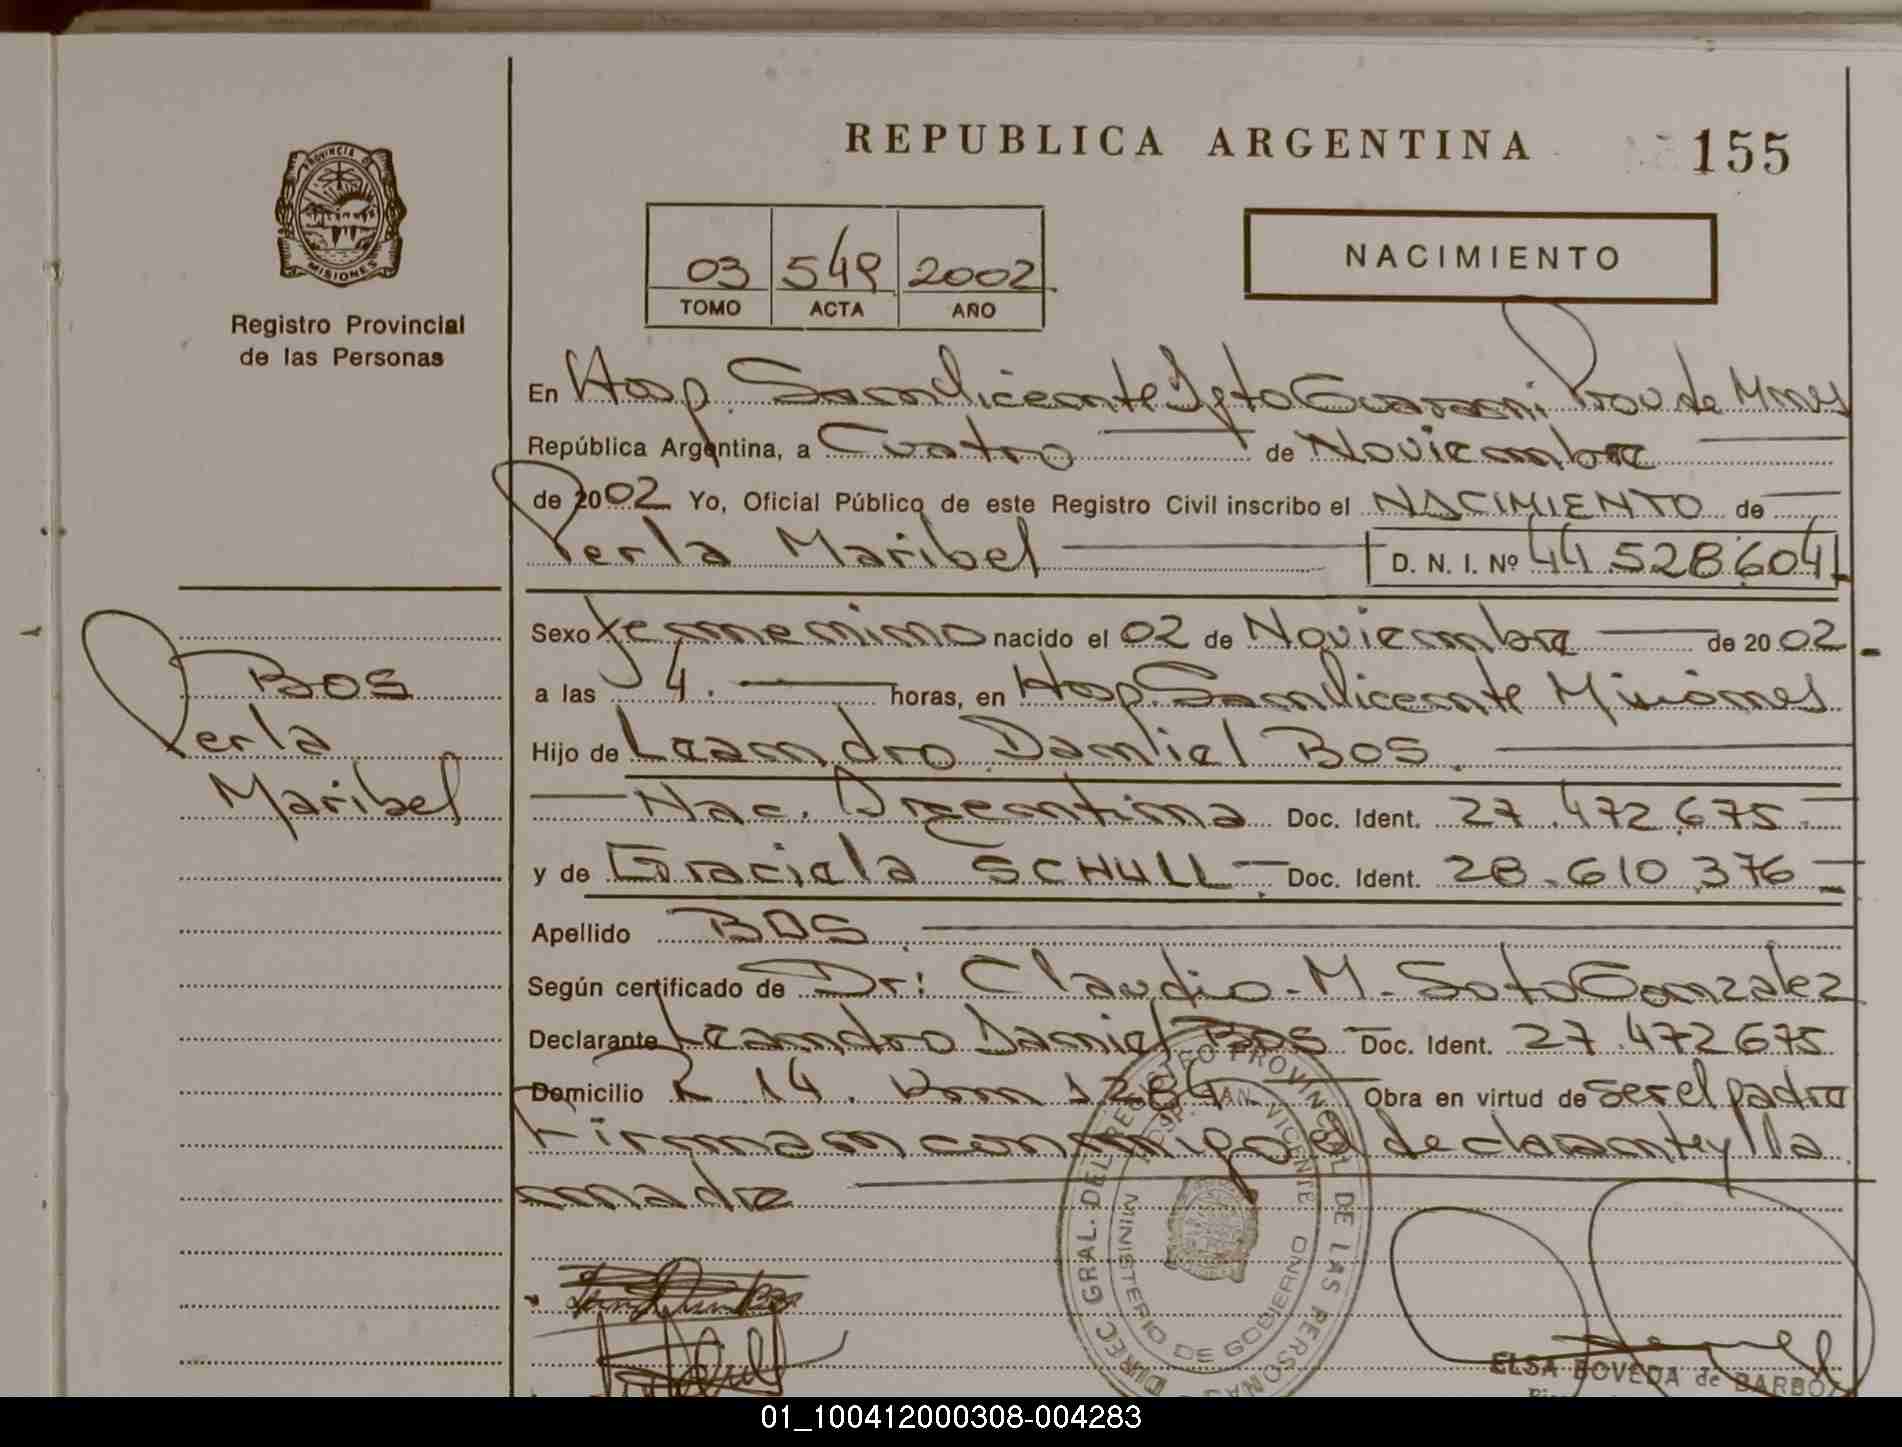 REPUBLICA ARGENTINA
155
PROVINCIA D
MISIONES
Registro Provincial
de las Personas
03 549 2002
TOMO ACTA AÑO
NACIMIENTO
En Hosp. San Vicente Dpto Guarani Prov de Mnes
República Argentina, a Cuatro de Noviembre
de 2002 Yo, Oficial Público de este Registro Civil inscribo el NACIMIENTO de
Perla Maribel D. N. I. Nº 44.528.604
Sexo femenino nacido el 02 de Noviembre de 2002
a las 4. horas, en Hosp. San Vicente Misiones
Hijo de Leandro Daniel BOS
Nac. Argentina Doc. Ident. 27.472.675
y de Graciela SCHULL Doc. Ident. 28.610.376
Apellido BOS
Según certificado de Dr: Claudio-M-Soto Gonzalez
Declarante Leandro Daniel BOS Doc. Ident. 27.472675
Domicilio R 14. Km 1284 Obra en virtud de ser el padre
Firman conmigo el declarante y la
madre
BOS
Perla
Maribel
DIREC GRAL. DEL REGISTRO PROVINCIAL DE LAS PERSONAS
HOSP. SAN VICENTE
MINISTERIO DE GOBIERNO
ELSA BOVEDA de
01_100412000308-004283